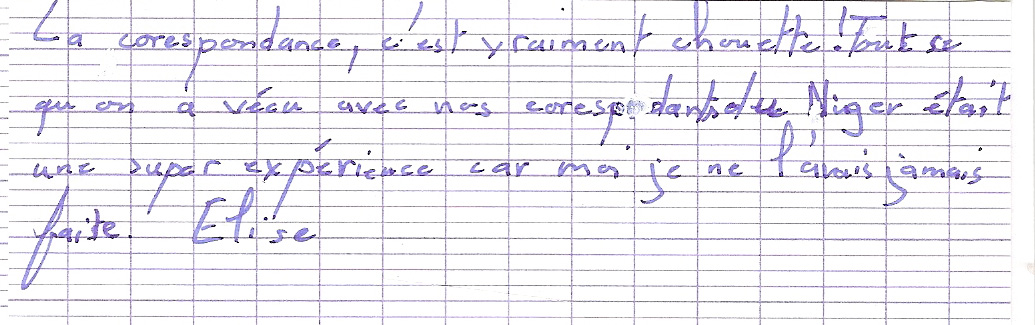 La corespondance, c'est vraiment chouette ! Tout se
qu on a vécu avec nos corespondants du Niger était
une super expérience car moi je ne l'avais jamais
faite. Elise